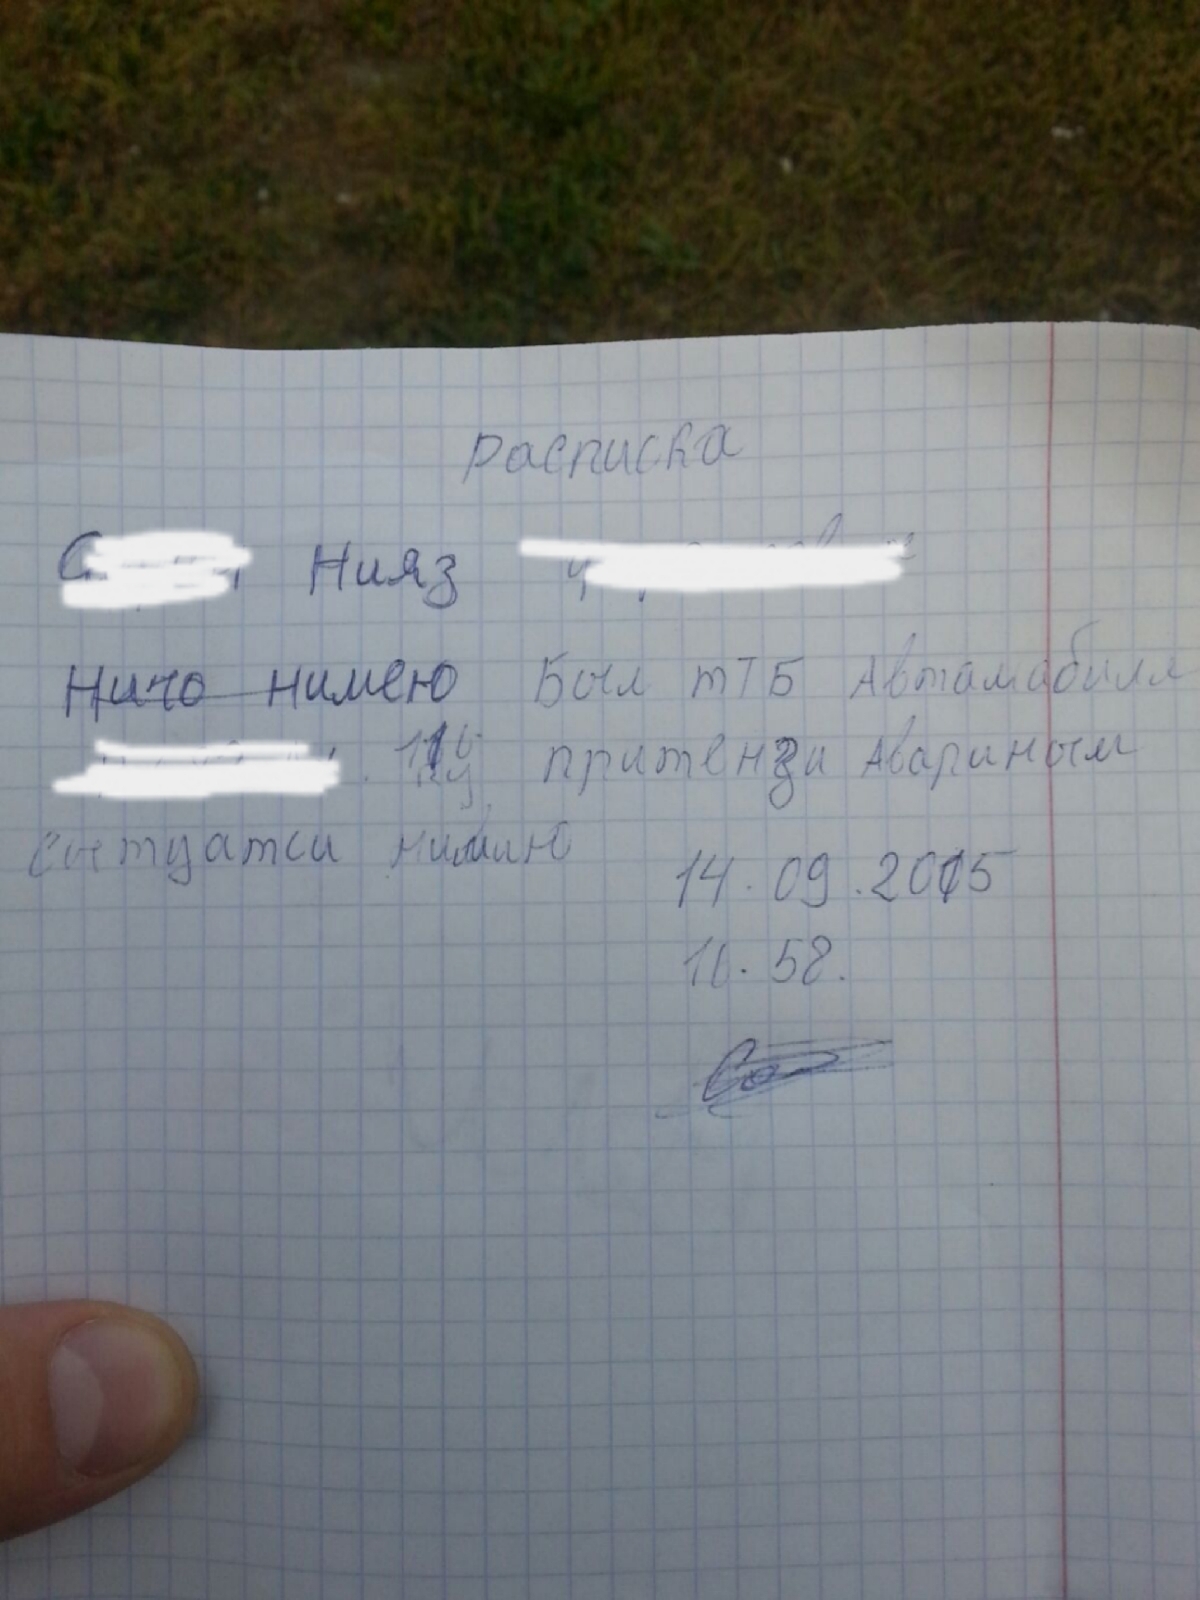 расписка
Нияз
Ничо нимею Был тТБ Автамабилл
притензи Авариным
нимию
14.09.2015
16.58.